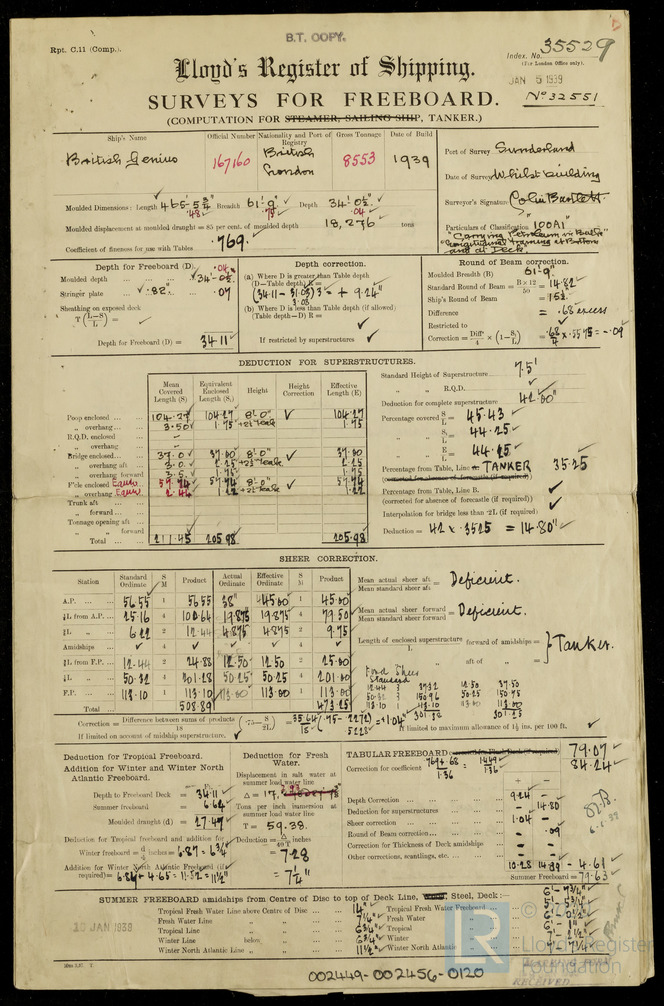 B.T. COPY.
Rpt. C.11 (Comp.).
Index. No. 35529
(For London Office only).
Lloyd's Register of Shipping.
JAN 5 1939
No 32551
SURVEYS FOR FREEBOARD.
(COMPUTATION FOR STEAMER, SAILING SHIP, TANKER.)
Ship's Name Official Number Nationality and Port of Registry Gross Tonnage Date of Build
British Genius 167160 British London 8553 1939
Port of Survey Sunderland
Date of Survey Whilst building
Surveyor's Signature Colin Bartlett.
Particulars of Classification 100A1
"Carrying Petroleum in Bulk"
Longitudinal framing at Bottom
and at Deck
Moulded Dimensions: Length 465'-5¾" Breadth 61'-9" Depth 34'-0½"
.48 .75 .04
Moulded displacement at moulded draught = 85 per cent. of moulded depth 18,276 tons
Coefficient of fineness for use with Tables .769.
Depth for Freeboard (D).
Moulded depth 34'-0½" .04
Stringer plate .82" .07
Sheathing on exposed deck
T (L−S/L) =
Depth for Freeboard (D) = 34.11
Depth correction.
(a) Where D is greater than Table depth
(D−Table depth) R =
(34.11 − 31.03) 3 = + 9.24"
3.08
(b) Where D is less than Table depth (if allowed)
(Table depth−D) R =
If restricted by superstructures
Round of Beam correction.
Moulded Breadth (B) 61'-9"
Standard Round of Beam = B×12/50 = 14.82
Ship's Round of Beam = 15½
Difference = .68 excess
Restricted to
Correction = Diff/4 × (1−S/L) = .68/4 × .5575 = −.09
DEDUCTION FOR SUPERSTRUCTURES.
Mean Covered Length (S) Equivalent Enclosed Length (S₁) Height Height Correction Effective Length (E)
Poop enclosed 104.27 104.27 8'-0" 104.27
„ overhang 3.50 1.75 1.75
R.Q.D. enclosed –
„ overhang –
Bridge enclosed 37.0 37.00 8'-0" 37.00
„ overhang aft 3.0 2.25 2.25
„ overhang forward 3.5 1.75 1.75
F'cle enclosed Equiv 57.74 57.74 8'-0" 57.74
„ overhang Equiv 2.44 1.22 1.22
Trunk aft
„ forward
Tonnage opening aft
„ „ forward
Total 211.45 205.98 205.98
Standard Height of Superstructure 7.5'
„ „ R.Q.D.
Deduction for complete superstructure 42.00"
Percentage covered S/L = 45.43
„ „ S₁/L = 44.25
„ „ E/L = 44.25
Percentage from Table, Line TANKER 35.25
(corrected for absence of forecastle (if required))
Percentage from Table, Line B.
(corrected for absence of forecastle (if required))
Interpolation for bridge less than .2L (if required)
Deduction = 42 × .3525 = 14.80"
SHEER CORRECTION.
Station Standard Ordinate S M Product Actual Ordinate Effective Ordinate S M Product
A.P. 56.55 1 56.55 38" 45.00 1 45.00
⅙L from A.P. 25.16 4 100.64 19.875 19.875 4 79.50
⅓L „ 6.22 2 12.44 4.875 4.875 2 9.75
Amidships 4 4
⅓L from F.P. 12.44 2 24.88 12.50 12.50 2 25.00
⅙L „ 50.32 4 201.28 50.25 50.25 4 201.00
F.P. 113.10 1 113.10 113.00 113.00 1 113.00
Total 508.89 473.25
Mean actual sheer aft / Mean standard sheer aft = Deficient.
Mean actual sheer forward / Mean standard sheer forward = Deficient.
Length of enclosed superstructure / L forward of amidships =
„ „ aft of „ =
} Tanker.
Ford Sheer
Standard
12.44 3 37.32 12.50 37.50
50.32 3 150.96 50.25 150.75
113.10 1 113.10 113.00 113.00
301.38 301.25
Correction = Difference between sums of products / 18 (.75 − S/2L) = 35.64/18 (.75 − .2272) = 1.04
.5228
If limited on account of midship superstructure. If limited to maximum allowance of 1½ ins. per 100 ft.
Deduction for Tropical Freeboard.
Addition for Winter and Winter North Atlantic Freeboard.
Depth to Freeboard Deck = 34.11
Summer freeboard = 6.64
Moulded draught (d) = 27.47
Deduction for Tropical freeboard and addition for
Winter freeboard = d/4 inches = 6.87 = 6¾"
Addition for Winter North Atlantic Freeboard (if required) = 6.87 + 4.65 = 11.52 = 11½"
Deduction for Fresh Water.
Displacement in salt water at summer load water line
Δ = 17,
Tons per inch immersion at summer load water line
T = 59.38.
Deduction = Δ/40T inches
= 7.28
= 7¼"
TABULAR FREEBOARD 79.07
Correction for coefficient .769 + .68 / 1.36 = 1.449/1.36 84.24
+ −
Depth Correction 9.24 –
Deduction for superstructures – 14.80
Sheer correction 1.04 –
Round of Beam correction – .09
Correction for Thickness of Deck amidships – –
Other corrections, scantlings, etc. – –
10.28 14.89 − 4.61
Summer Freeboard = 79.63
6.1.39
SUMMER FREEBOARD amidships from Centre of Disc to top of Deck Line, Steel, Deck:— 6'- 7¾"
Tropical Fresh Water Line above Centre of Disc 14" Tropical Fresh Water Freeboard 5'- 5¾"
Fresh Water Line „ „ 7¼" Fresh Water „ 6'- 0½"
Tropical Line „ „ 6¾" Tropical „ 6'- 1"
Winter Line below „ 6¾" Winter „ 7'- 2½"
Winter North Atlantic Line „ „ 11½" Winter North Atlantic „ 7'- 7¼"
10 JAN 1939
©
LR
Lloyd's Register
Foundation
RECEIVED
002449-002456-0120